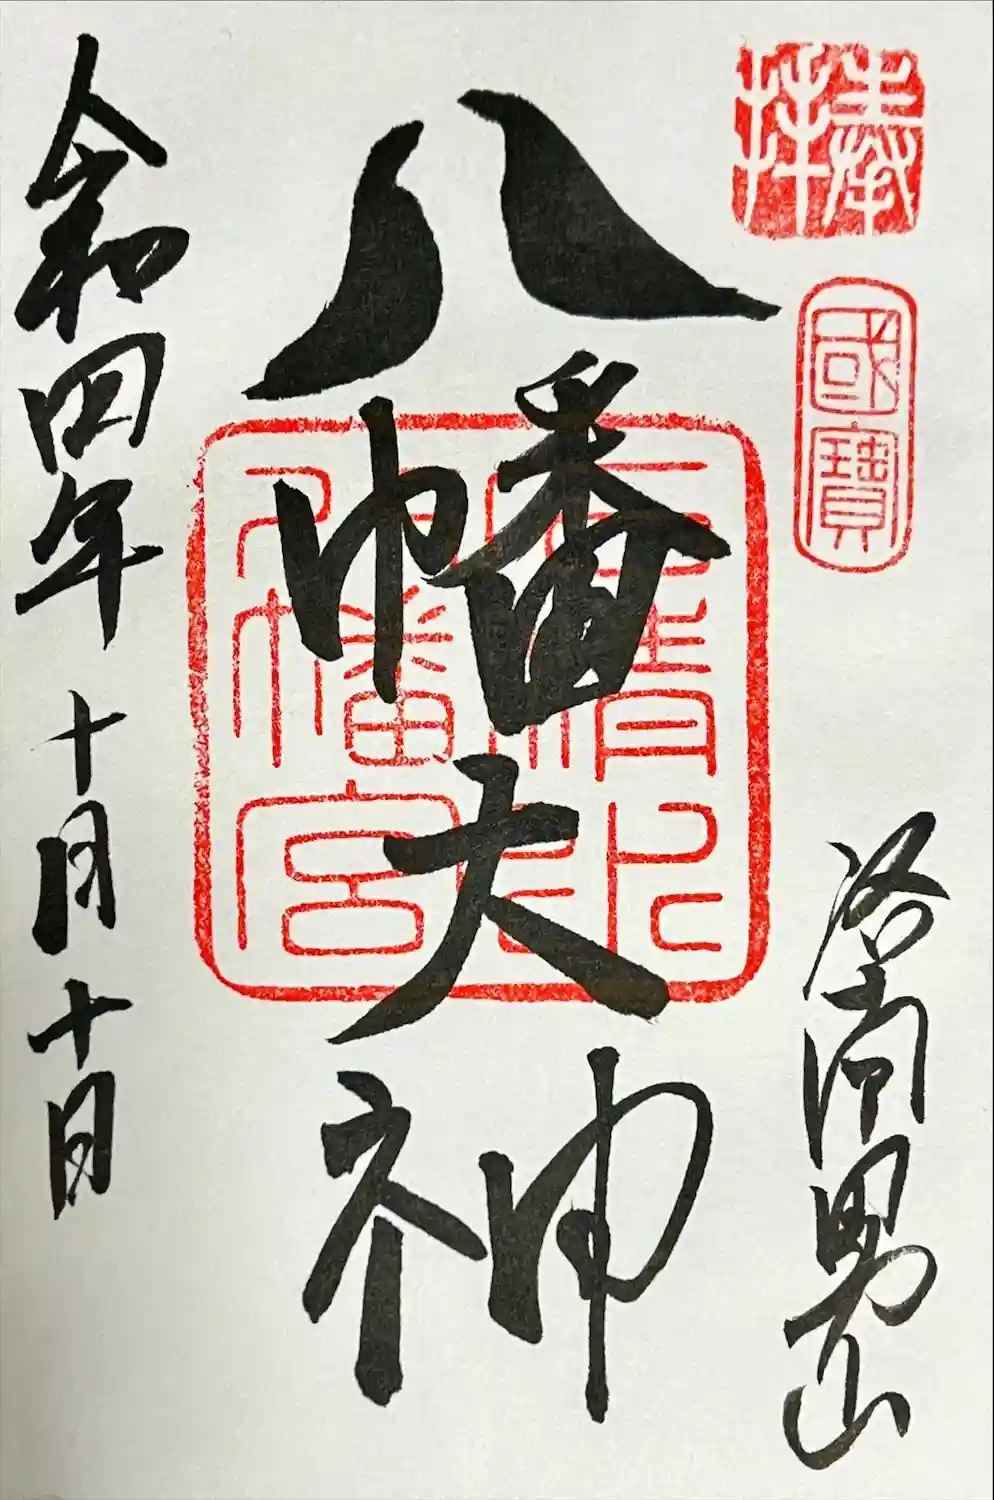 奉拝
國寶
洛南男山
八幡大神
石清水八幡宮
令和四年十月十日